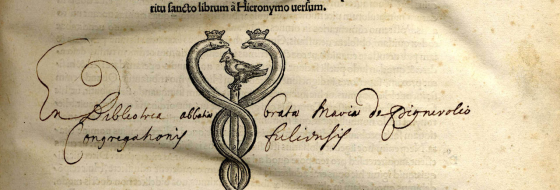 ritu sancto librum à Hieronymo uersum.
En Biblioteca abbatiæ beatæ Mariæ de Pignerolio
Congregationis fuliensis